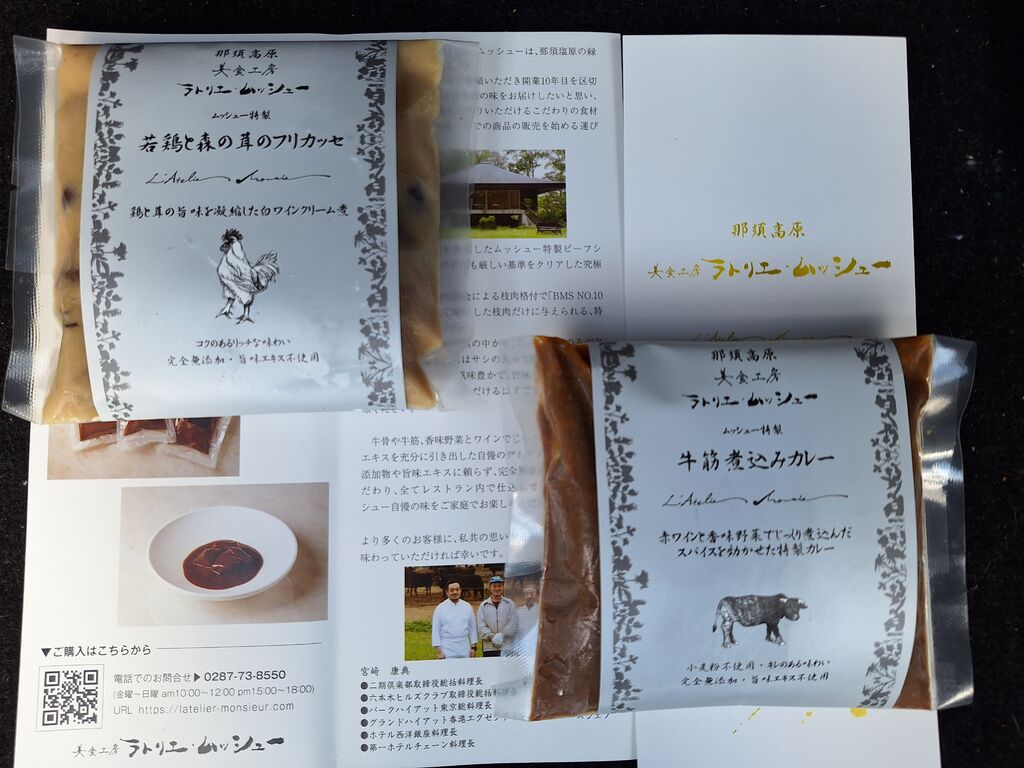 那須高原
美食工房
ラトリエ・ムッシュー
ムッシュー特製
若鶏と森の茸のフリカッセ
L'Atelier Monsieur
鶏と茸の旨味を凝縮した白ワインクリーム煮
コクのあるリッチな味わい
完全無添加・旨味エキス不使用
ムッシューは、那須塩原の緑
いただき開業10年目を区切
の味をお届けしたいと思い、
りいただけるこだわりの食材
での商品の販売を始める運び
したムッシュー特製ビーフシ
も厳しい基準をクリアした究極
会による枝肉格付で「BMS NO.10
した枝肉だけに与えられる、特
牛骨や牛筋、香味野菜とワインでじ
エキスを充分に引き出した自慢のデミ
添加物や旨味エキスに頼らず、完全
だわり、全てレストラン内で仕込
シュー自慢の味をご家庭でお楽し
より多くのお客様に、私共の思い
味わっていただければ幸いです。
宮崎 康典
●二期倶楽部取締役総括料理長
●六本木ヒルズクラブ取締役総括料
●パークハイアット東京総料理長
●グランドハイアット香港エグゼク
●ホテル西洋銀座料理長
●第一ホテルチェーン料理長
▼ご購入はこちらから
電話でのお問合せ▶0287-73-8550
(金曜〜日曜 am10:00〜12:00 pm15:00〜18:00)
URL https://latelier-monsieur.com
美食工房 ラトリエ・ムッシュー
那須高原
美食工房 ラトリエ・ムッシュー
那須高原
美食工房
ラトリエ・ムッシュー
ムッシュー特製
牛筋煮込みカレー
L'Atelier Monsieur
赤ワインと香味野菜でじっくり煮込んだ
スパイスを効かせた特製カレー
小麦粉不使用・キレのある味わい
完全無添加・旨味エキス不使用